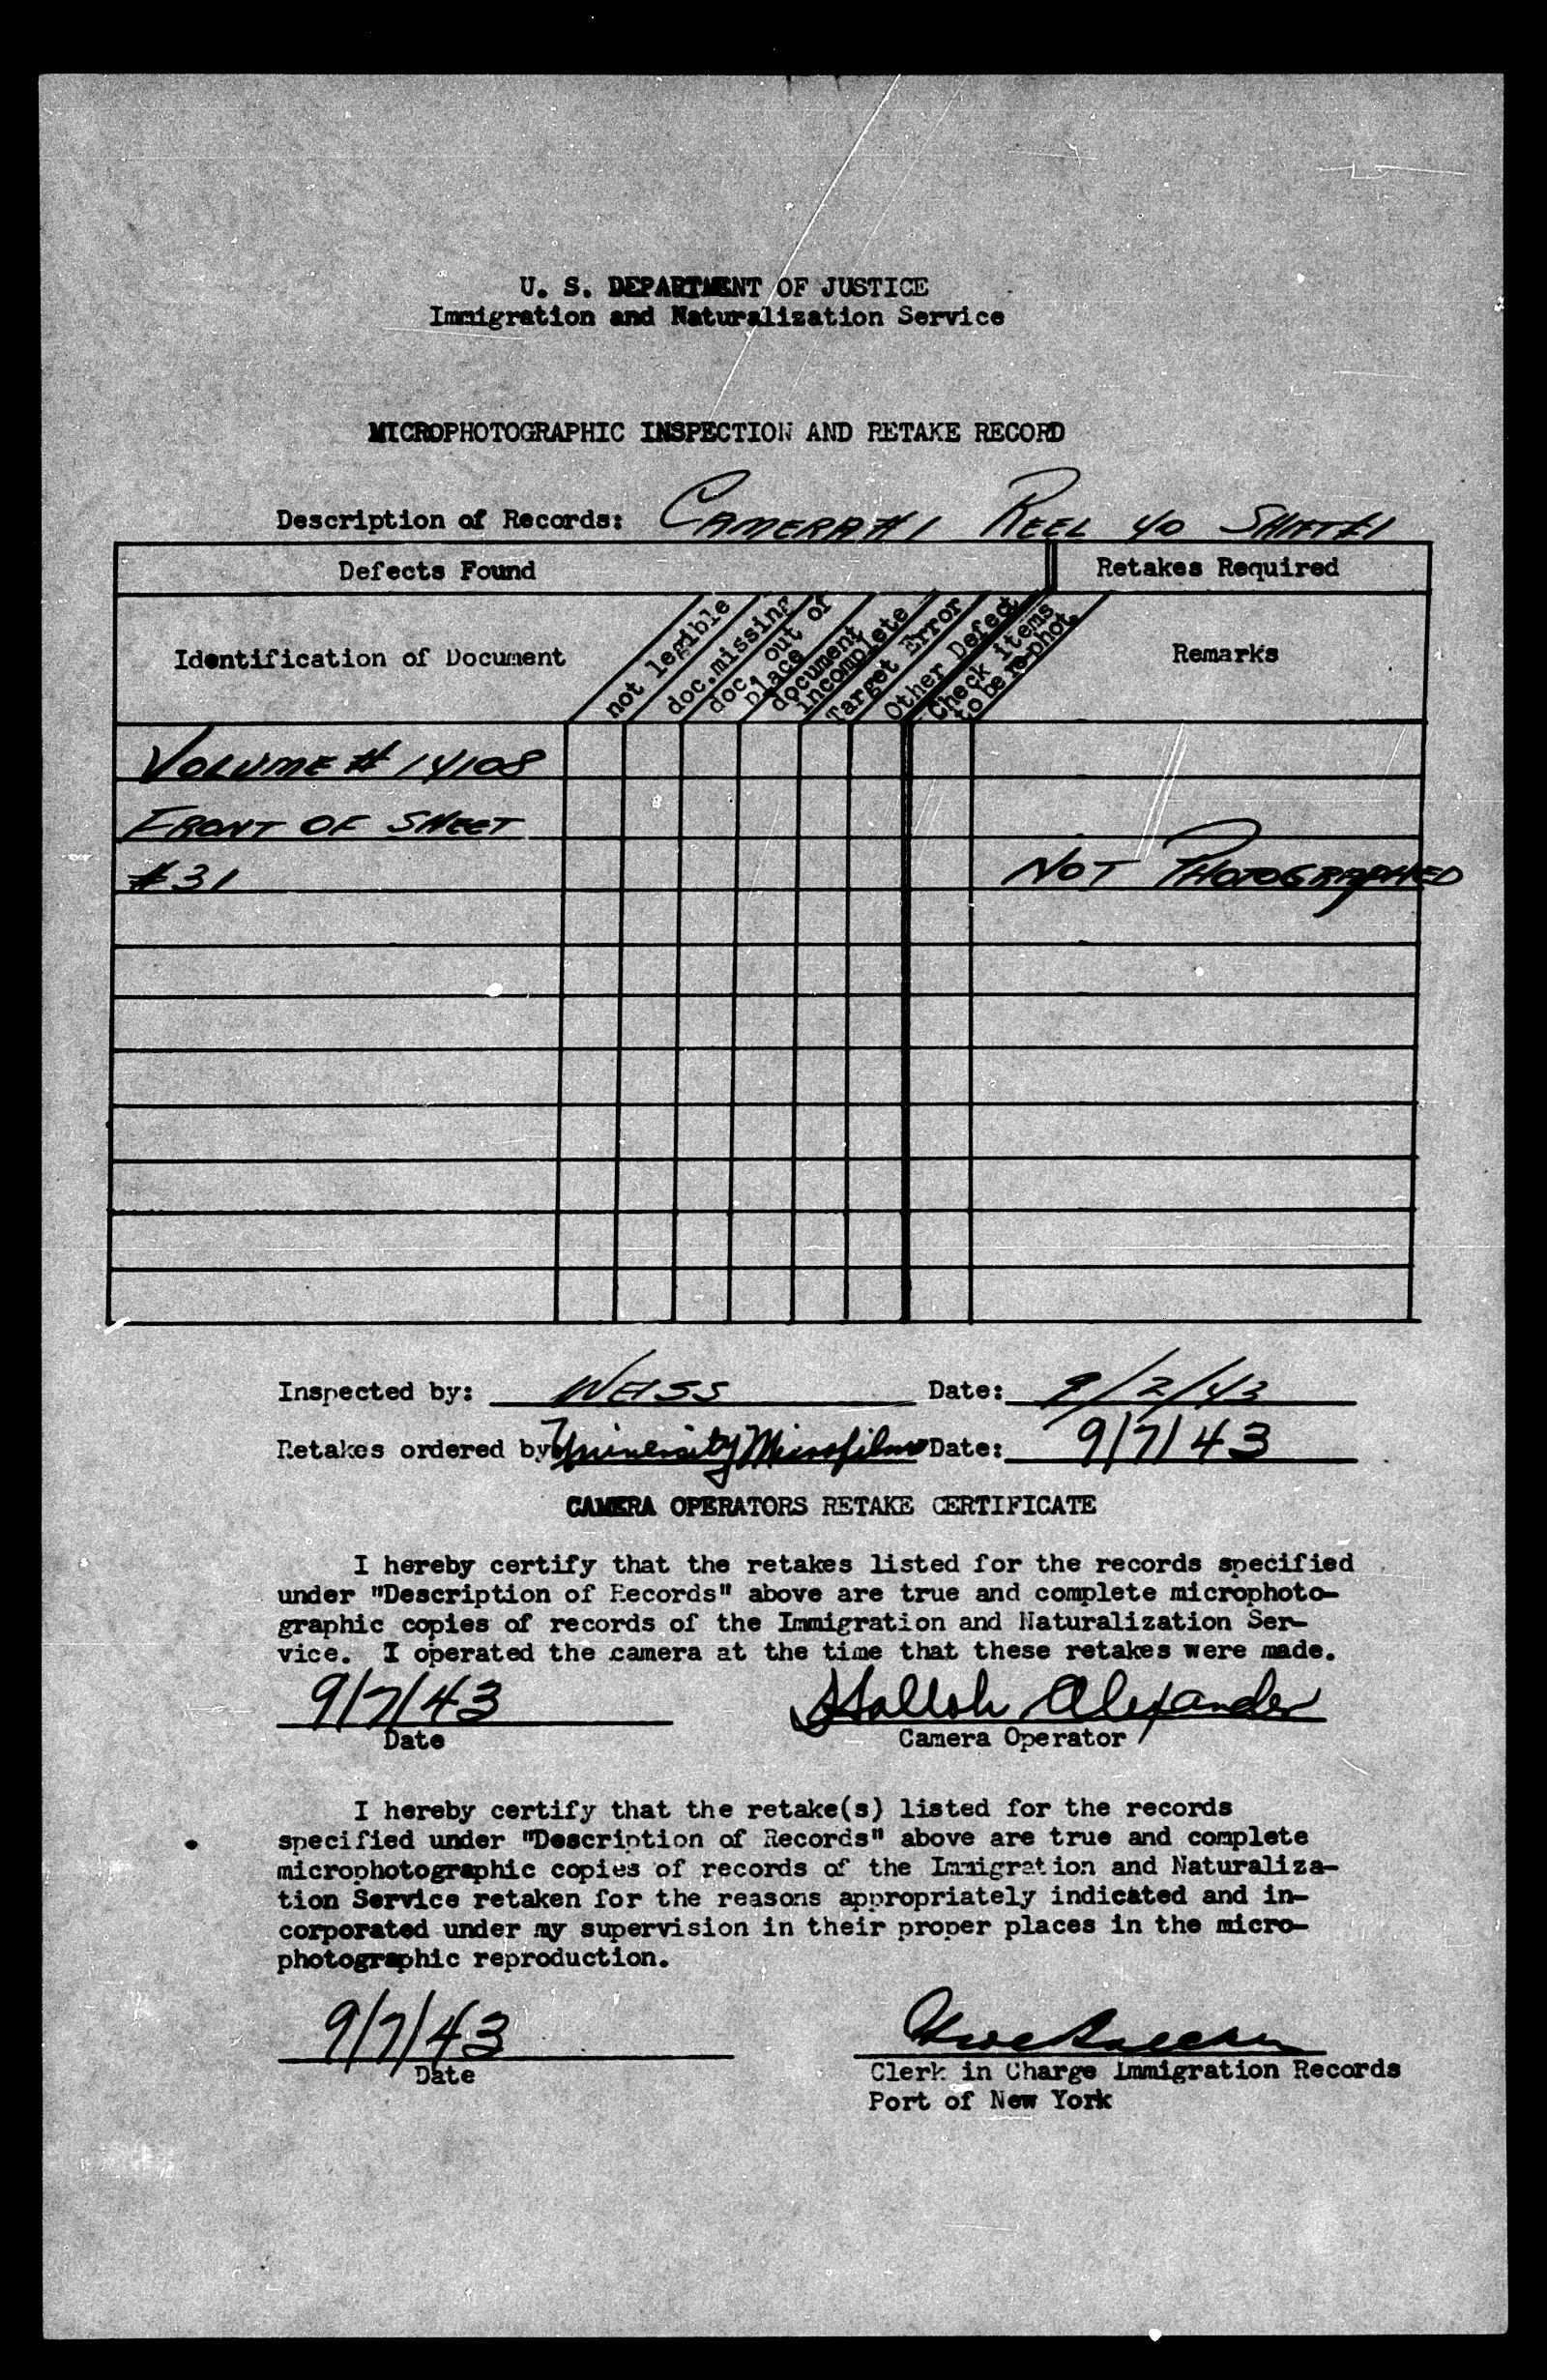 U. S. DEPARTMENT OF JUSTICE
Immigration and Naturalization Service
MICROPHOTOGRAPHIC INSPECTION AND RETAKE RECORD
Description of Records: CAMERA #1 REEL 40 SHIFT #1
Defects Found
Retakes Required
Identification of Document
not legible
doc. missing
doc. out of
place
document
incomplete
Target Error
Other Defect
Check items
to be re-phot.
Remarks
VOLUME # 14108
FRONT OF SHEET
#31 NOT PHOTOGRAPHED
Inspected by: WEISS Date: 9/2/43
Retakes ordered by University Microfilms Date: 9/7/43
CAMERA OPERATORS RETAKE CERTIFICATE
I hereby certify that the retakes listed for the records specified
under "Description of Records" above are true and complete microphoto-
graphic copies of records of the Immigration and Naturalization Ser-
vice. I operated the camera at the time that these retakes were made.
9/7/43 Alexander
Date Camera Operator
I hereby certify that the retake(s) listed for the records
specified under "Description of Records" above are true and complete
microphotographic copies of records of the Immigration and Naturaliza-
tion Service retaken for the reasons appropriately indicated and in-
corporated under my supervision in their proper places in the micro-
photographic reproduction.
9/7/43
Date
Clerk in Charge Immigration Records
Port of New York